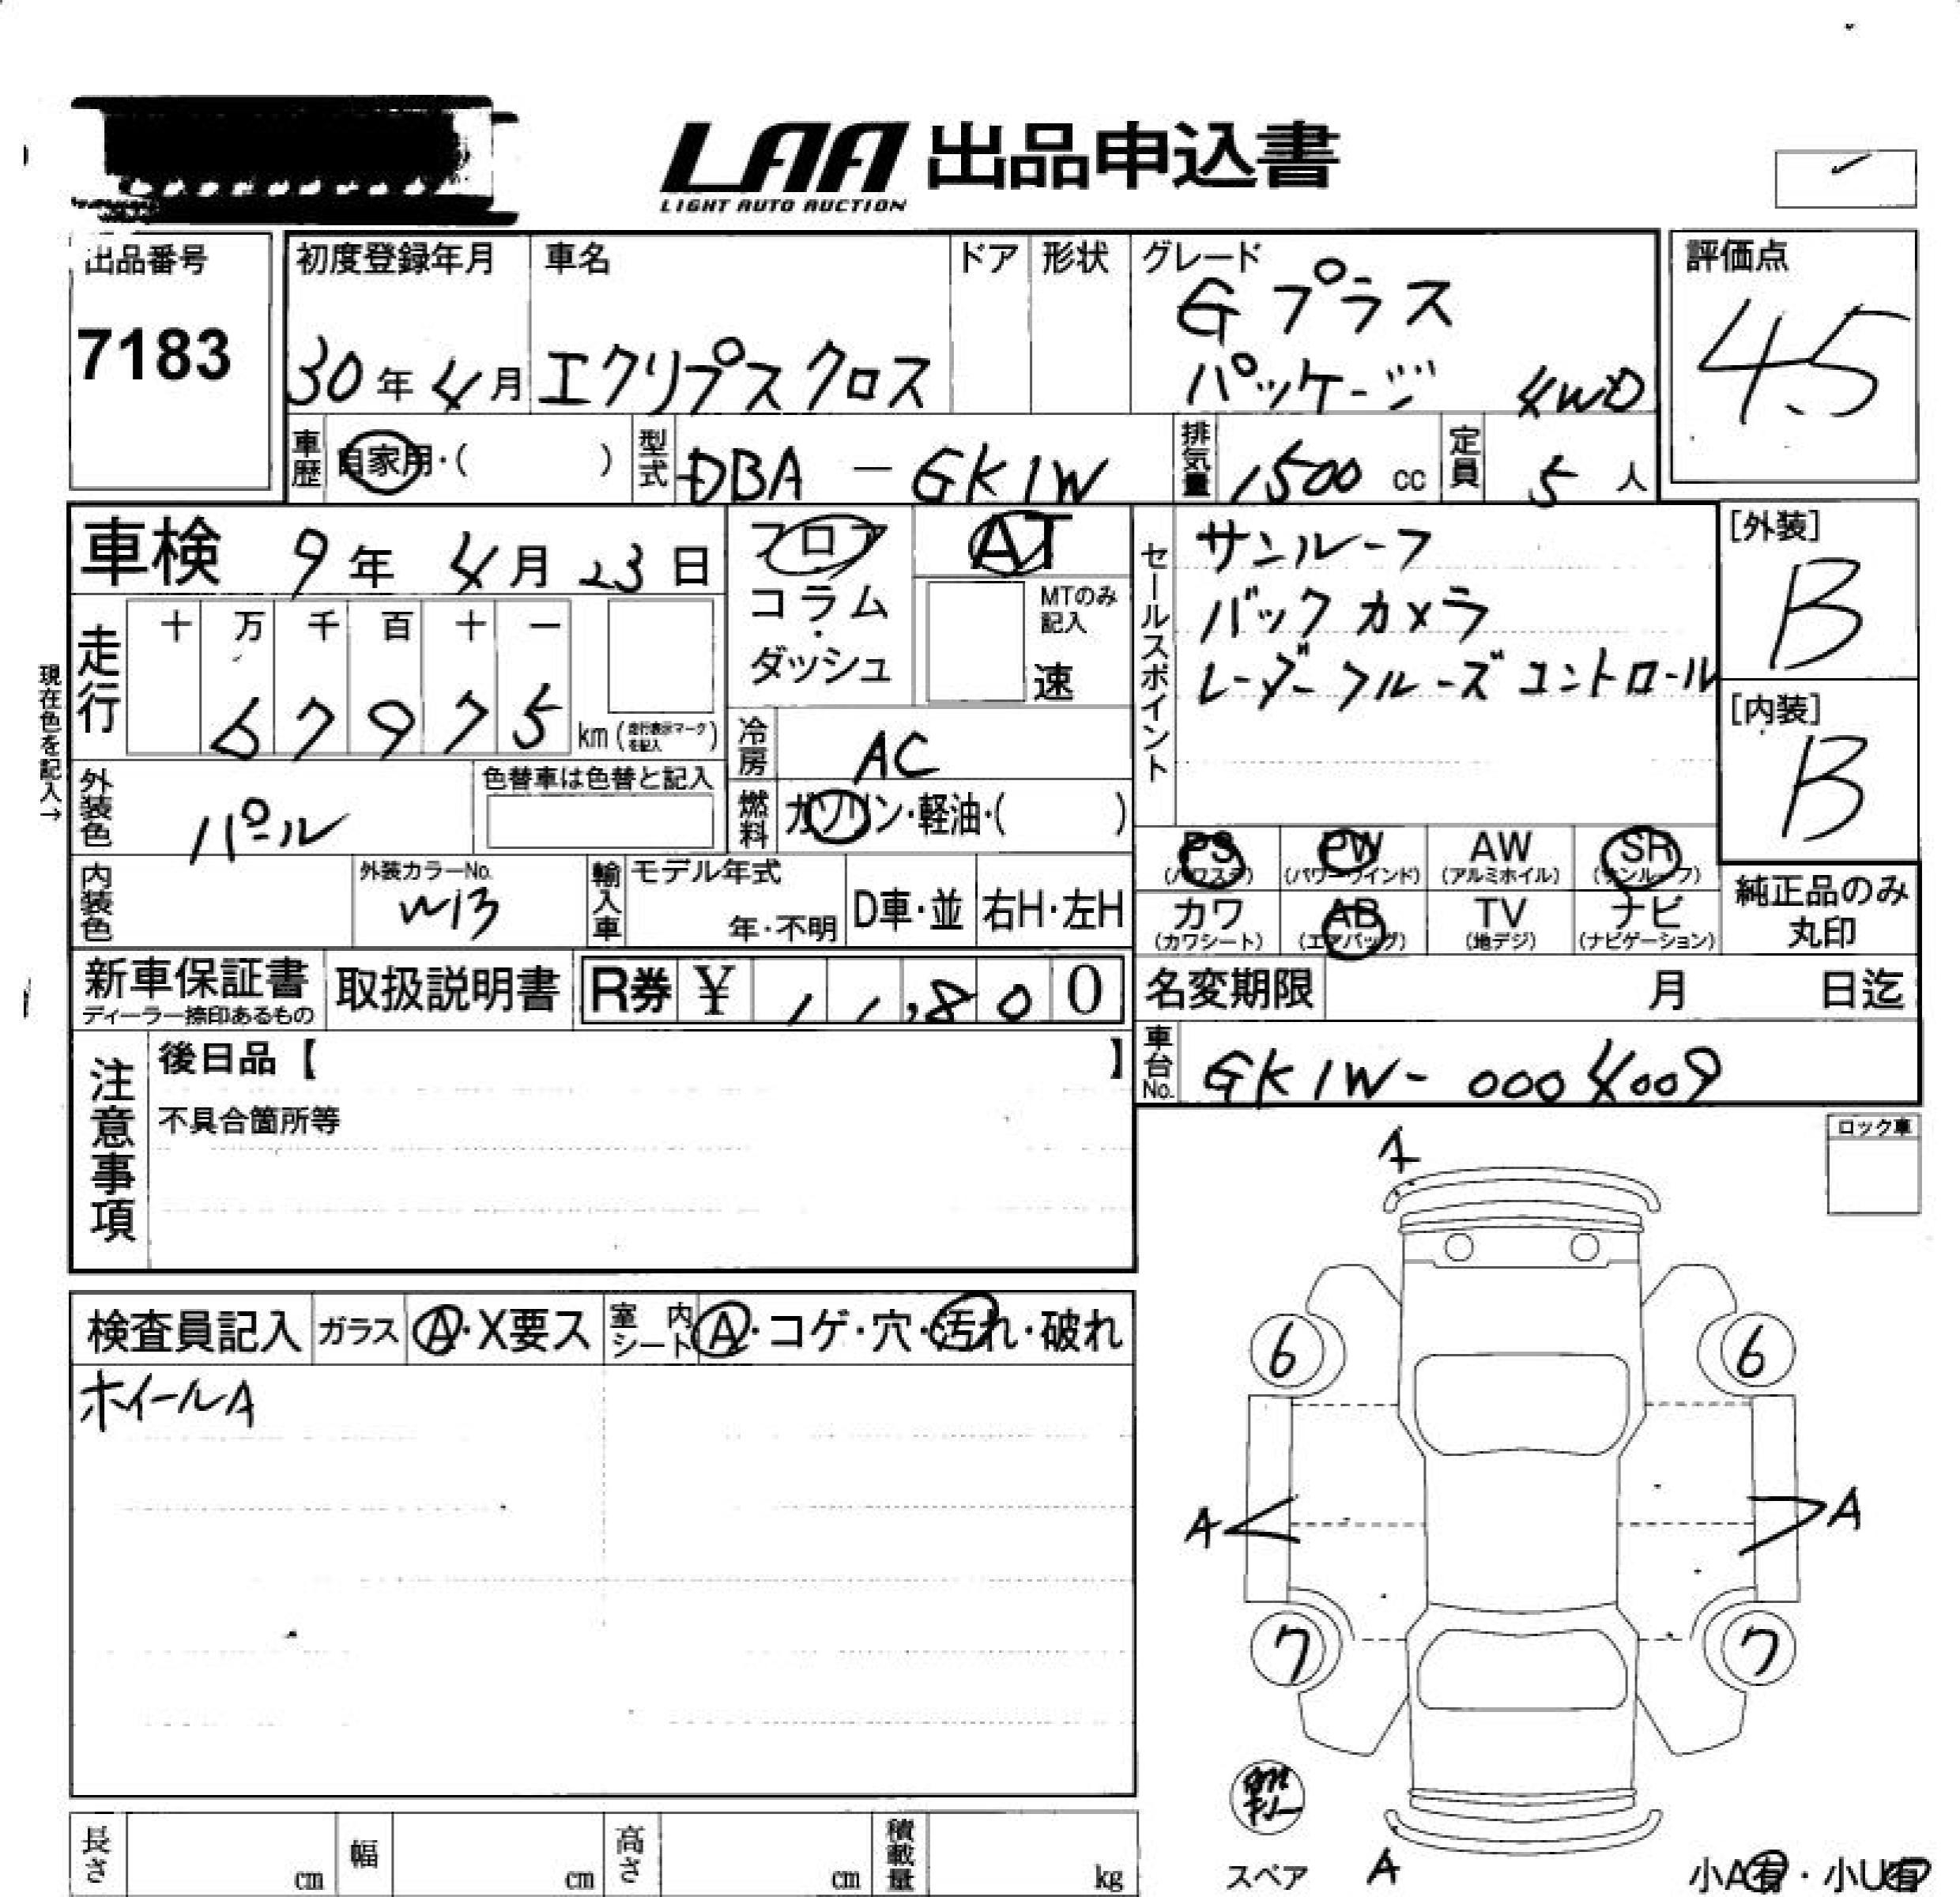 LAA 出品申込書
LIGHT AUTO AUCTION
出品番号
7183
初度登録年月
30年 4月
車名
エクリプスクロス
ドア
形状
グレード
Gプラス
パッケージ 4WD
評価点
4.5
車歴
自家用・( )
型式
DBA - GK1W
排気量
1500 cc
定員
5 人
車検 9年 4月 23日
フロア
コラム
・
ダッシュ
AT
MTのみ
記入
速
セールスポイント
サンルーフ
バックカメラ
レーダークルーズコントロール
[外装]
B
[内装]
B
現在色を記入→
走行
十 万 千 百 十 一
6 7 9 7 5 km (走行表示マークを記入)
冷房
AC
外装色
パール
色替車は色替と記入
燃料
ガソリン・軽油・( )
PS
(パワステ)
PW
(パワーウインド)
AW
(アルミホイル)
SR
(サンルーフ)
内装色
外装カラーNo.
W13
輸入車
モデル年式
年・不明
D車・並
右H・左H
カワ
(カワシート)
AB
(エアバッグ)
TV
(地デジ)
ナビ
(ナビゲーション)
純正品のみ
丸印
新車保証書
ディーラー捺印あるもの
取扱説明書
R券 ¥ 1 1,8 0 0
名変期限 月 日迄
車台No.
GK1W- 0004009
注意事項
後日品【 】
不具合箇所等
ロック車
検査員記入
ガラス
A・X要ス
室内
シート
A・コゲ・穴・汚れ・破れ
ホイールA
A
6
6
A
A
7
7
スペア
A
小A有・小U有
長さ cm
幅 cm
高さ cm
積載量 kg